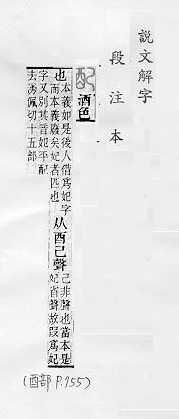 說文解字
段注本
配 酒色
也 本義如是後人借爲妃字
而本義廢矣妃者匹也
从酉己聲
己非聲也當本是
妃省聲故叚爲妃
字又別其音妃平配
去滂佩切十五部
(酉部 P.755)